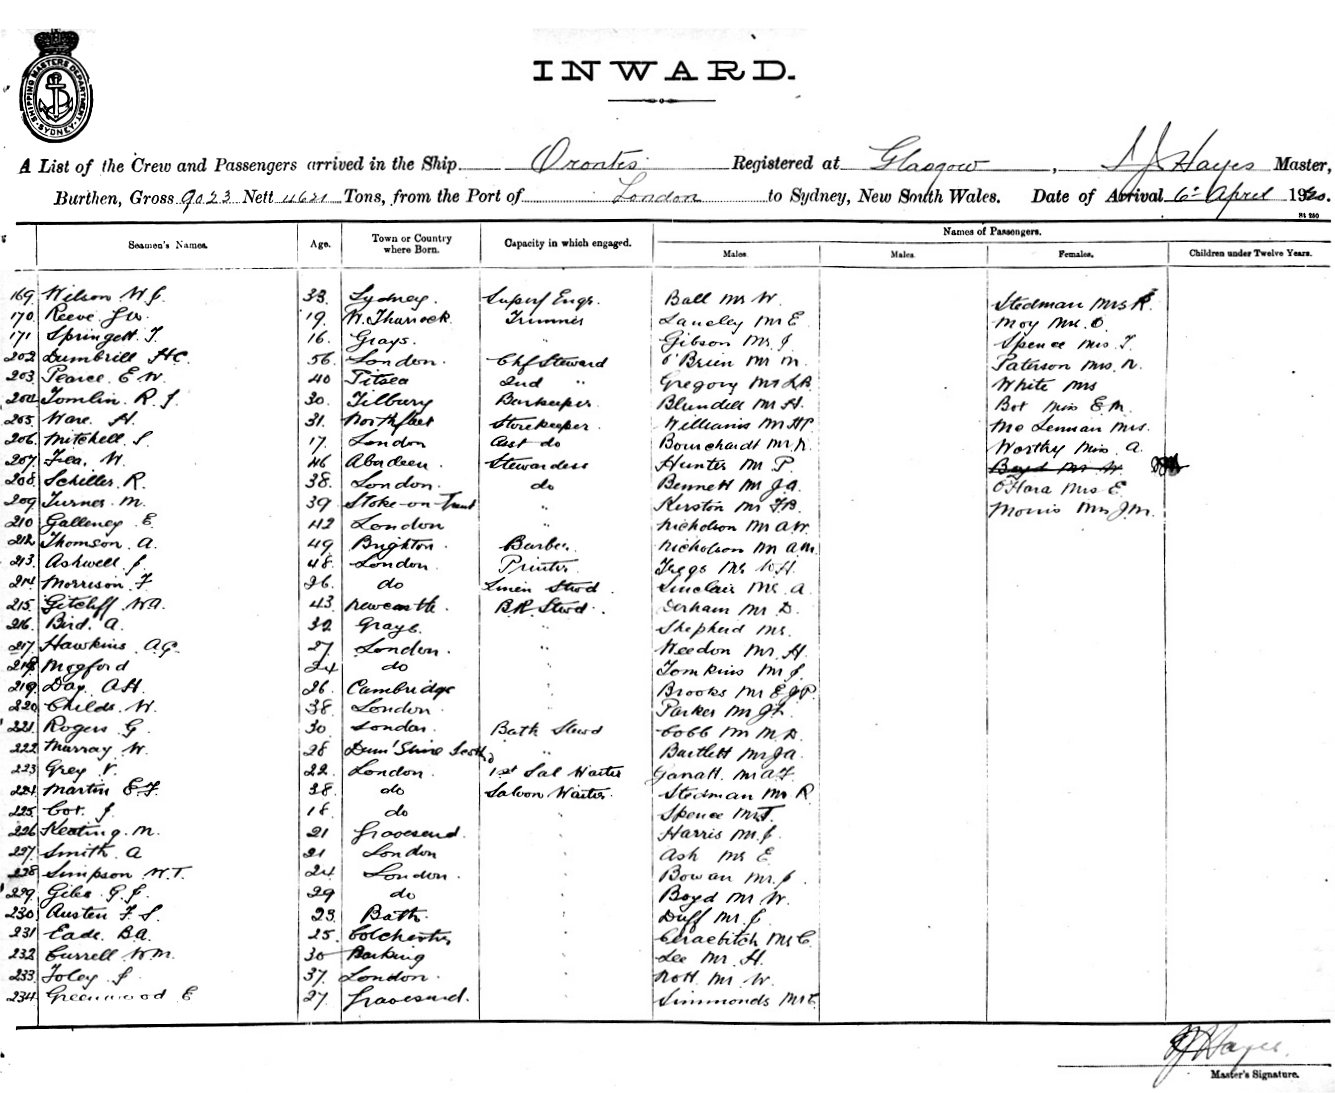 SHIPPING MASTERS DEPARTMENT
SYDNEY
INWARD.
A List of the Crew and Passengers arrived in the Ship Orontes Registered at Glasgow, Hayes Master,
Burthen, Gross 9023 Nett 4621 Tons, from the Port of London to Sydney, New South Wales. Date of Arrival 6th April 1920.
Names of Passengers.
Seamen's Names. Age. Town or Country where Born. Capacity in which engaged. Males Males Females. Children under Twelve Years.
169 Wilson W J 33 Sydney. Engr. Ball Mr W. Stedman Mrs R
170 Reeve 19 W. Thurrock Trimmer Langley Mr E Moy
171 Springett T. 16 Grays. " Gibson Mr J Spence Mrs T.
202 Dumbrill HC 56 London. Chf Steward O'Brien Mr M. Paterson Mrs N.
203 Pearce E W. 40 2nd " Gregory Mr White Mrs
204 Tomlin R J. 30 Tilbury Barkeeper Blundell Mr H. Miss E M.
205 Ware H. 31 Northfleet Storekeeper Williams Mr HP Mc Lennan Mrs.
206 Mitchell S. 17 London Asst do Bourchardt Mr N. Worthy Miss A.
207 W. 46 Aberdeen. Stewardess Hunter Mr P. Boyd Mr W.
208 Schiller R. 38 London. do Bennett Mr J A. O'Hara Mrs E.
209 Turner M. 39 Stoke-on-Trent " Kerston Mr F.B. Morris Mrs J.M.
210 Galleney E. 42 London Nicholson Mr A W.
212 Thomson A. 49 Brighton. Barber. Nicholson Mr A M.
213 Ashwell J. 48 London. Printer Mr W H.
214 Morrison F 26 do Linen Stwd Sinclair Mr A.
215 Gitcliff WA. 43 Newcastle. B.R. Stwd. Derham Mr D.
216 Bird. A. 32 Grays. " Shepherd Mr.
217 Hawkins AG. 27 London. " Weedon Mr H.
218 Mogford 24 do " Tomkins Mr J.
219 Day AH. 26 Cambridge " Brooks Mr E J P.
220 Childs W. 38 London. " Parker Mr
221 Rogers G 30 London. Bath Stwd Cobb Mr M D.
222 Murray W. 28 " Bartlett Mr J A.
223 Grey V. 22 London. 1st Sal Waiter Mr A F
224 Martin E F. 28 do Saloon Waiter. Stedman Mr R
225 Cox J 18 do " Spence Mr T.
226 Keating M. 21 Gravesend. " Harris Mr J.
227 Smith A 21 London " Ash Mr E
228 Simpson W.T. 24 London. " Bowan Mr J.
229 Giles G J. 29 do " Boyd Mr W.
230 Austen F S. 23 Bath. " Duff Mr J.
231 Eade. B A. 25 Colchester " Mr C.
232 Currell Wm. 30 Barking " Lee Mr H.
233 Foley J 37 London. " Nott Mr W.
234 Greenwood E 27 Gravesend. " Simmonds Mr E
Hayes.
Master's Signature.